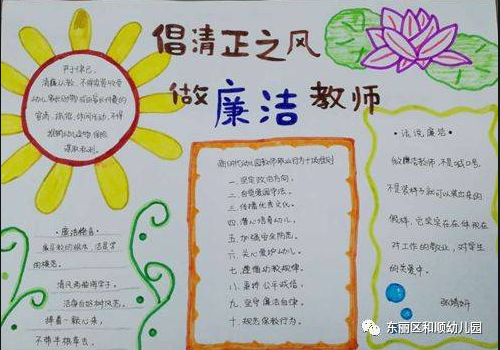 倡清正之风
做廉洁教师
严于律己,
清廉从教。不得索要、收受
幼儿家长财物或由家长付费的
宴请、旅游、休闲活动,不得
谋取私利。
新时代幼儿园教师职业行为十项准则
一.坚定政治方向。
二.自觉爱国守法。
三.传播优秀文化。
四.潜心培育幼儿。
五.加强安全防范。
六.关心爱护幼儿。
七.遵循幼教规律。
八.秉持公平诚信。
九.坚守廉洁自律。
十.规范保教行为。
·廉洁格言·
廉是教的根本,洁是学
的模范。
清风两袖溥学子。
洁身自好树风范。
捧着一颗心来,
不带半根草去。
·话说廉洁·
做廉洁教师,不是喊口号,
不是装样子就可以装出来的
假样,它实实在在体现在
对工作的敬业,对学生
的关爱中。
东丽区和顺幼儿园